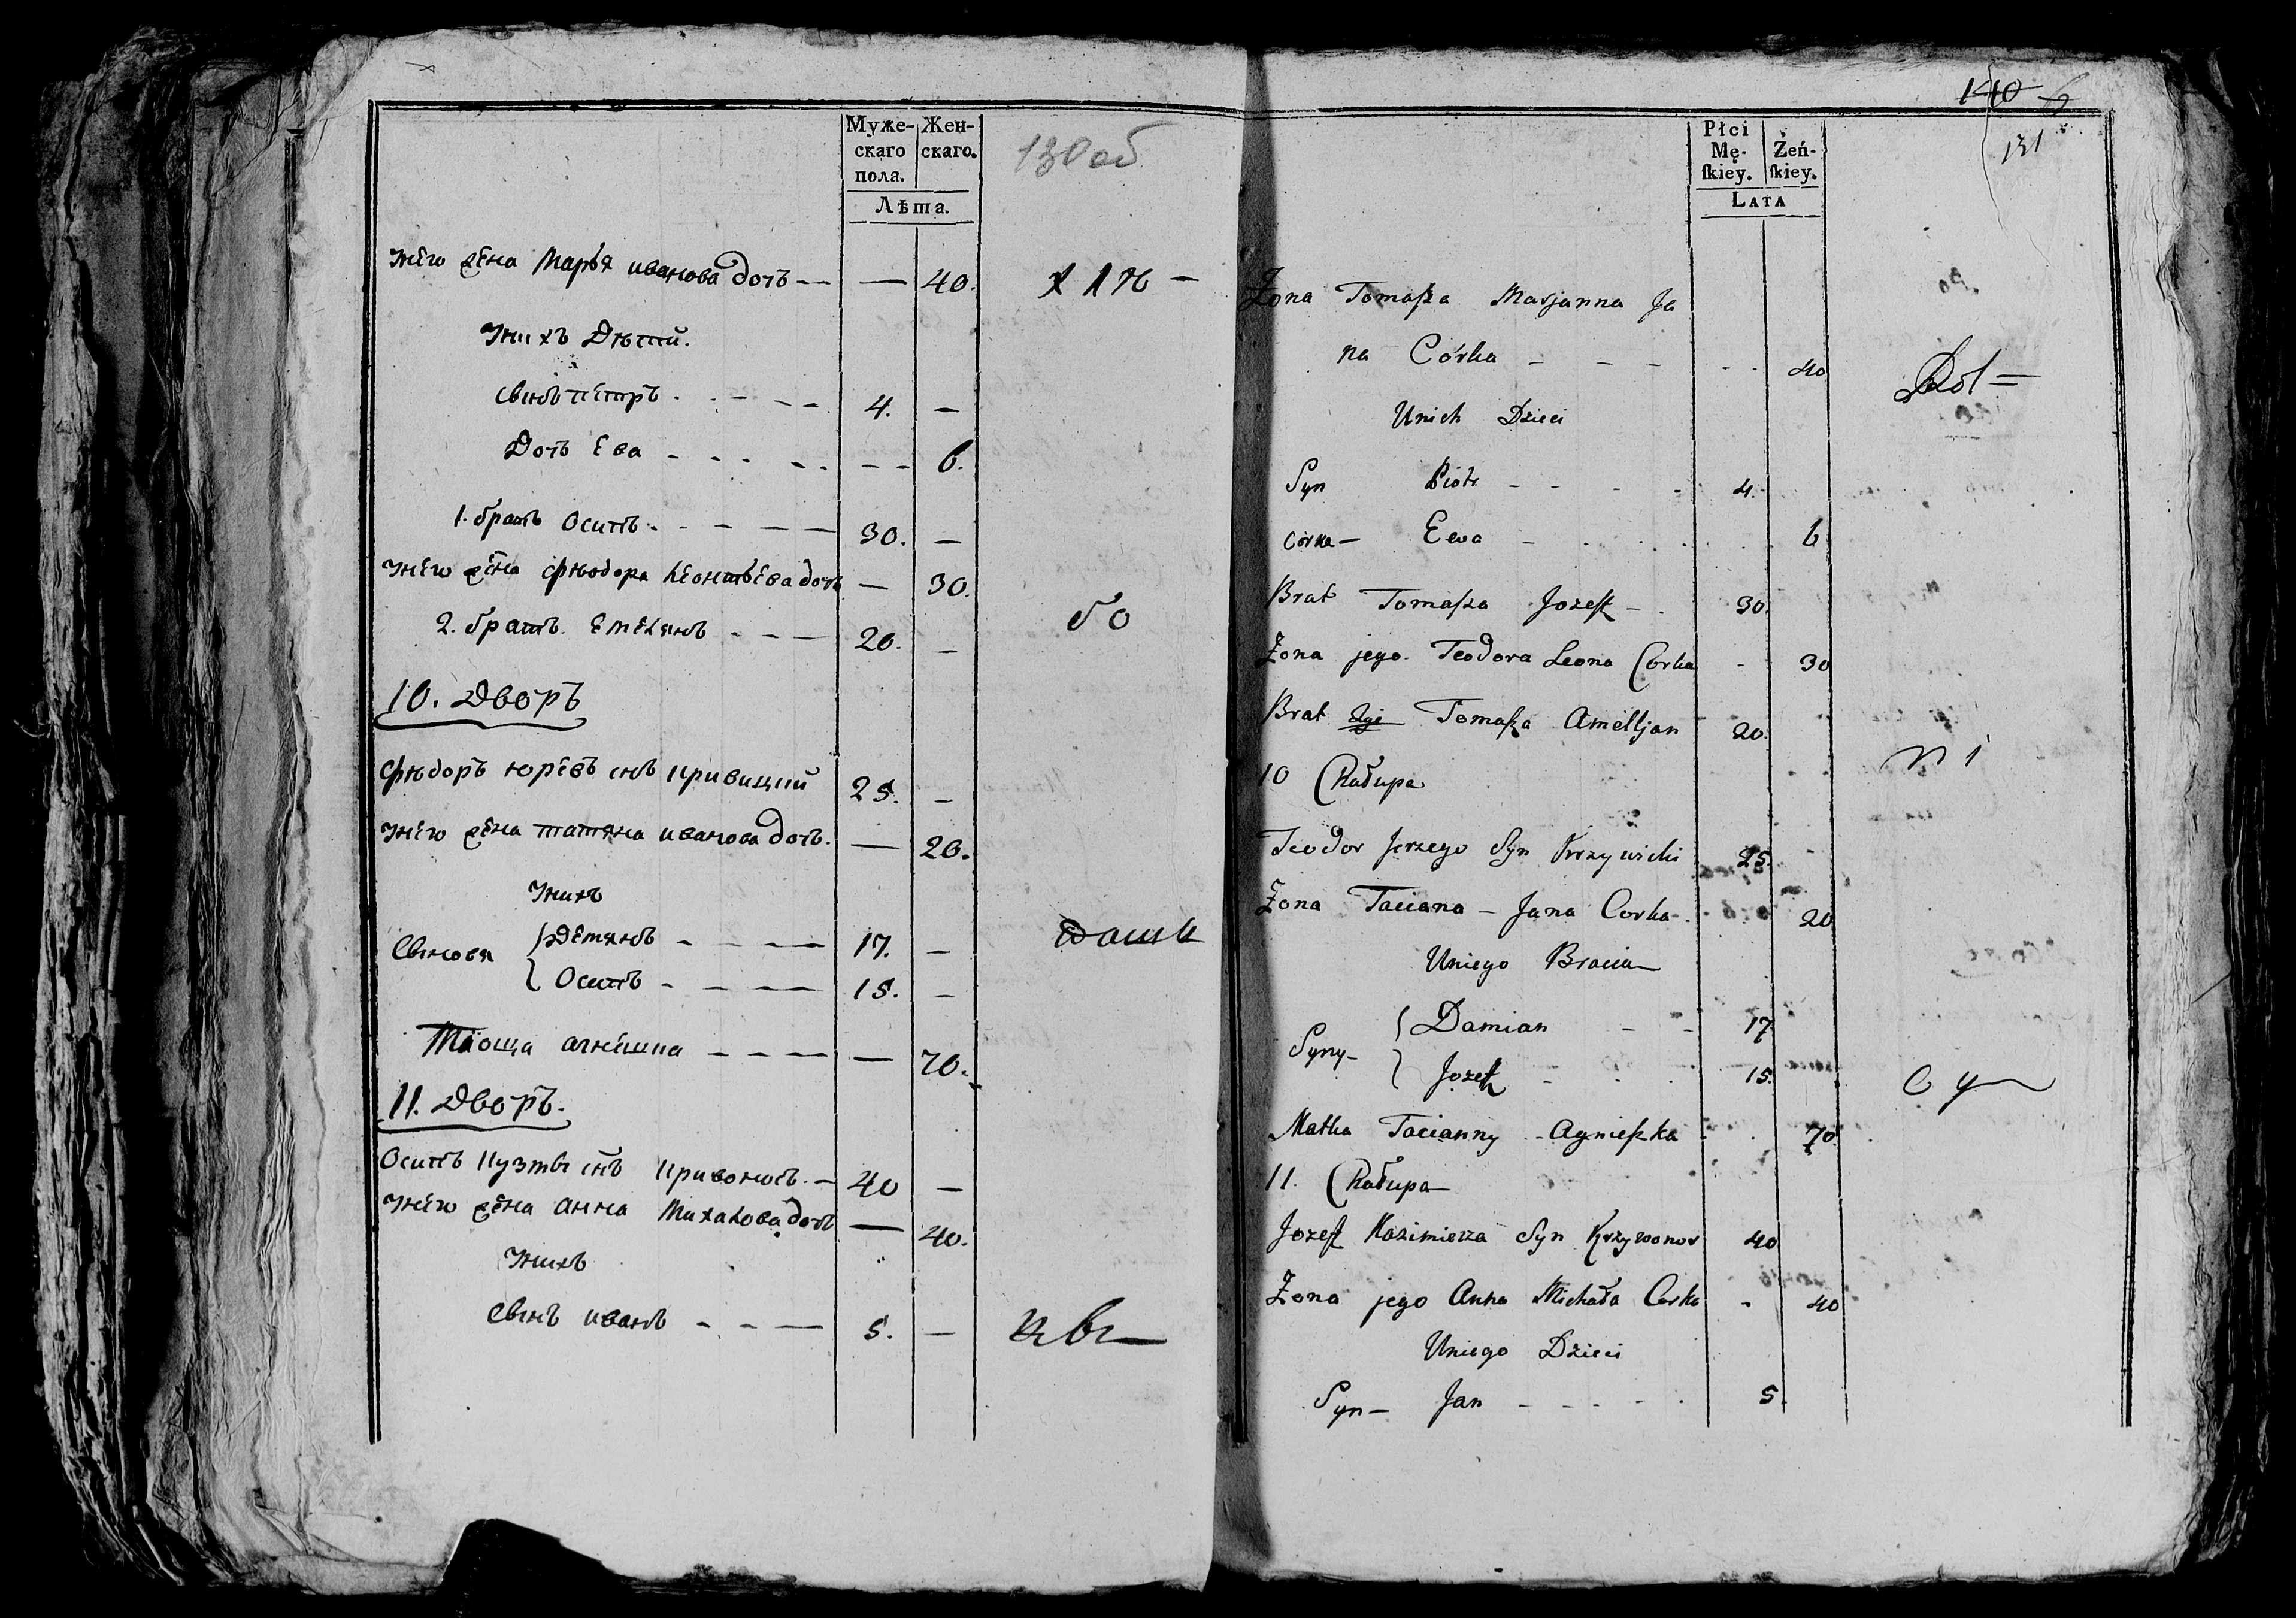 130 об
Муже-
скаго
пола.
Жен-
скаго.
Лѣта.
унего жена Марья иванова дочь -- — 40.
унихъ Дѣти.
Сынъ петръ. 4. —
Дочь Ева - - - 6.
1. братъ осипъ. 30. —
унего жена фіодора леонтьева дочь — 30.
2. братъ. емельянъ 20. —
10. Дворъ
фіодоръ юрьевъ снъ кривицкий 25. —
унего жена татяна иванова дочь. — 20.
унихъ
Сыновя
демянъ 17. —
Осипъ 15. —
Тіоща агнешка — 70.
11. Дворъ.
Осипъ кузмы снъ кривоносъ. 40 —
унего жена анна Михалова дочь — 40.
унихъ
Сынъ иванъ 5. —
140
131
Płci
Mę-
ſkiey.
Żeń-
ſkiey.
LATA
Żona Tomaſza Marjanna Ja
na Córka - - - 40
Unich Dzieci
Syn Piotr - - - 4.
Corka — Ewa - 6
Brat Tomaſza Jozeff - 30.
Żona jego. Teodora Leona Corka - 30
Brat Tomaſza Amelljan 20.
10 Chałupa
Teodor Jerzego Syn Krzywicki 25.
Żona Taciana — Jana Corka - 20
Uniego Bracia
Syny —
Damian - - 17
Jozef - - 15.
Matka Tacianny - Agnieſzka 70.
11. Chałupa —
Jozeff Kazimierza Syn Krzywonos 40
Żona jego Anna Michała Corka - 40
Uniego Dzieci
Syn — Jan - - - 5.